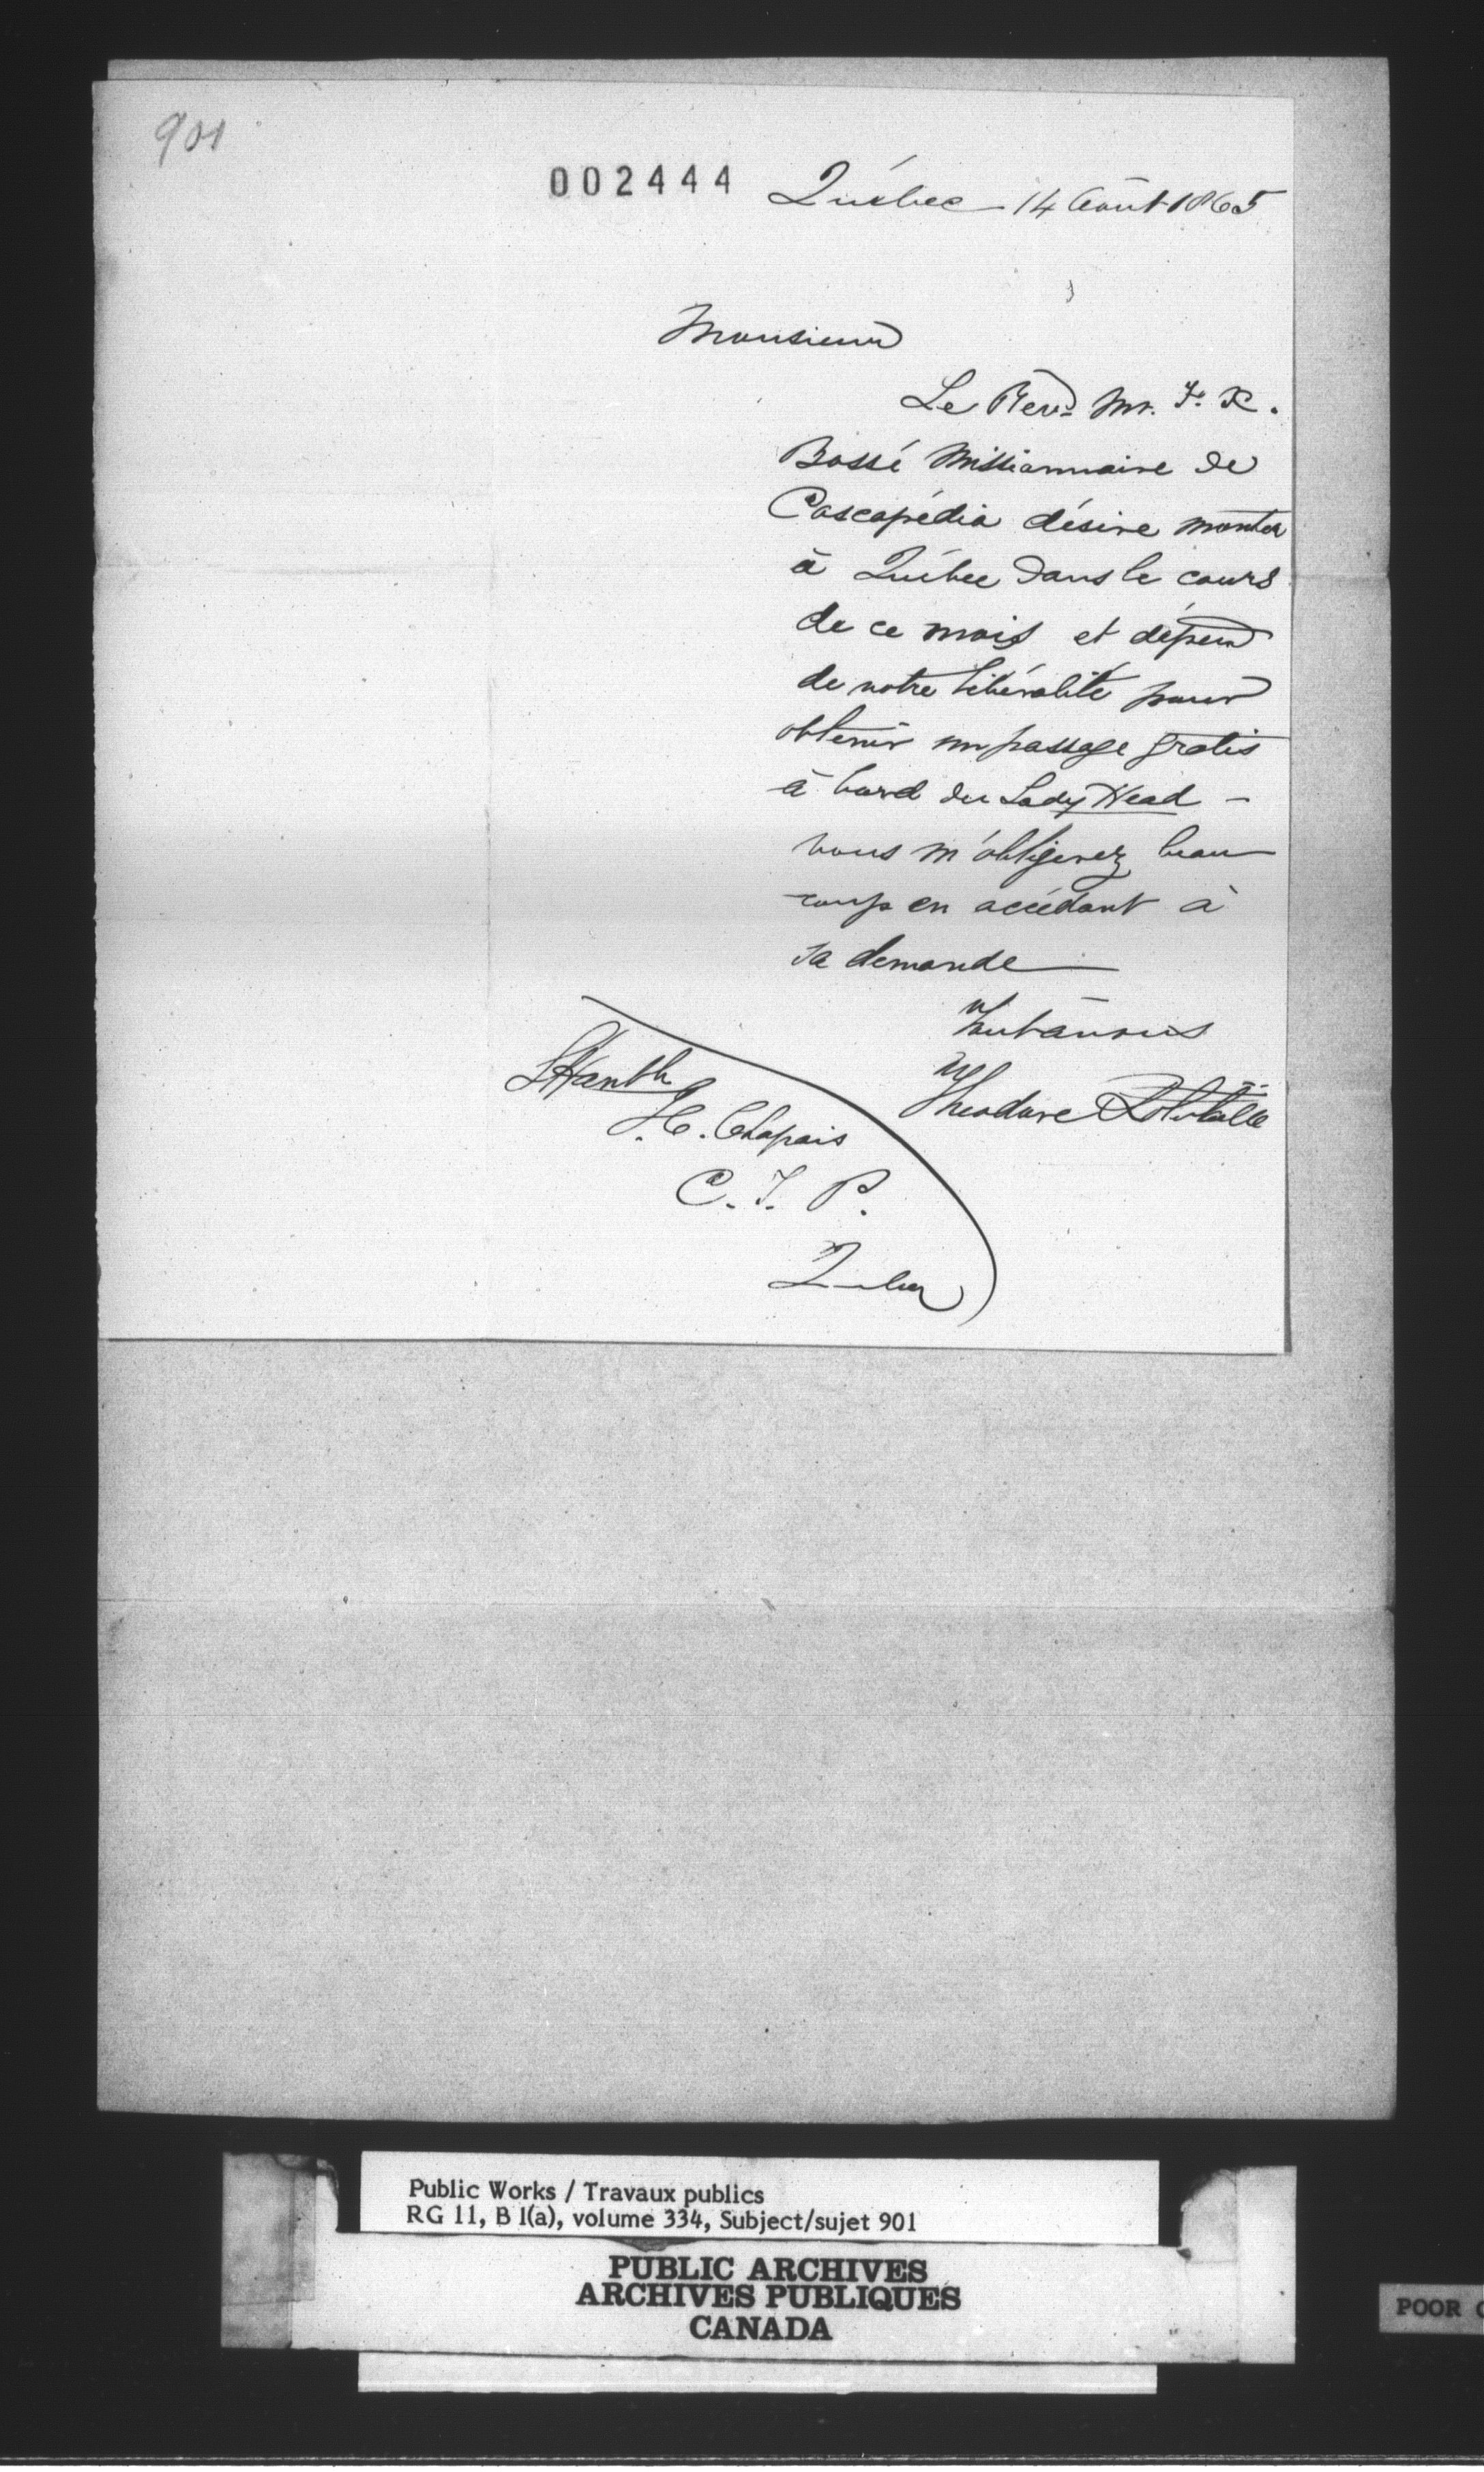 901
002444
Québec 14 Août 1865
Monsieur
Le Révd Mr. F. X.
Bossé Missionnaire de
Cascapédia désire monter
à Québec dans le cours
de ce mois et dépend
de votre libéralité pour
obtenir un passage gratis
à bord du Lady Head –
vous m'obligerez beau
coup en accédant à
sa demande
Tout à vous
Théodore Robitaille
L'Honble
J. C. Chapais
C. T. P.
Québec
Public Works / Travaux publics
RG 11, B 1(a), volume 334, Subject/sujet 901
PUBLIC ARCHIVES
ARCHIVES PUBLIQUES
CANADA
POOR